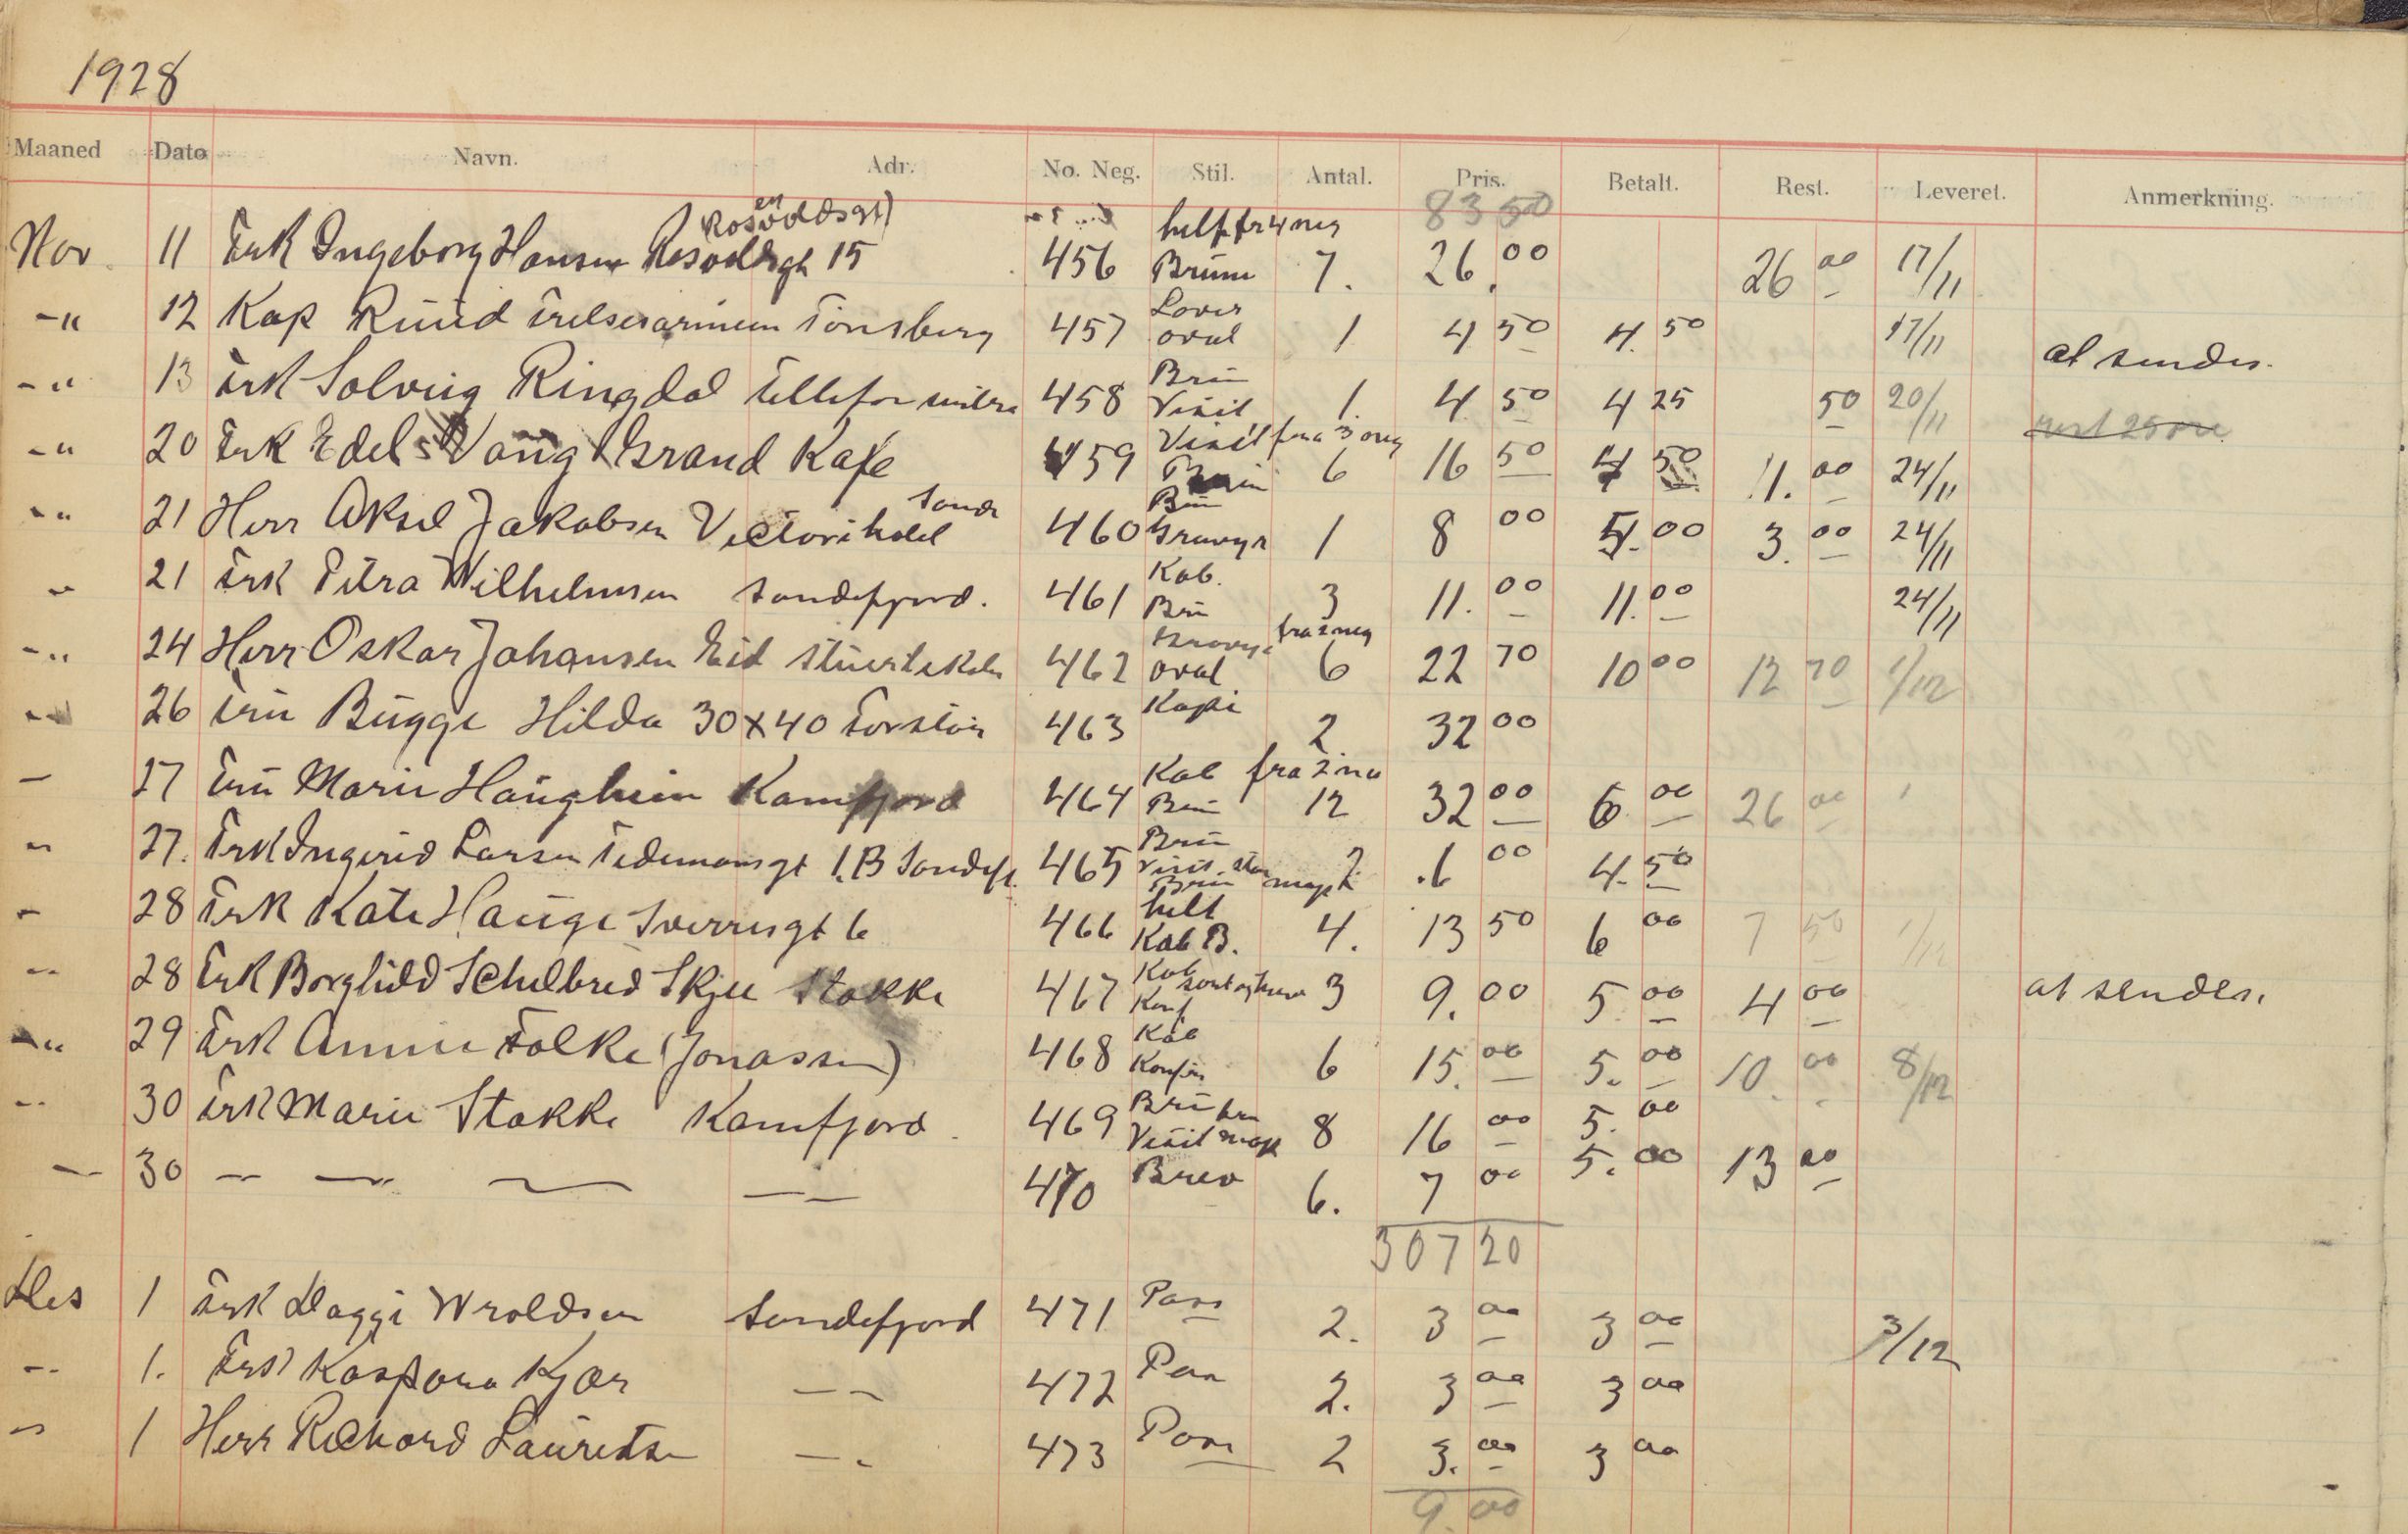 1928
Maaned Dato Navn. Adr. No. Neg. Stil. Antal. Pris. Betalt. Rest. Leveret. Anmerkning.
83 50
Rosvoldsgt)
Nov 11 Frk Ingeborg Hansen Rosvoldsgt 15 456 helf fr 4 neg Brunn 7. 26.00 26 00 17/11
-" 12 Kap Ruud Frelsesarmeen Tönsberg 457 oval 1 4 50 4. 50 17/11 at sendes.
-" 13 Frk Solveig Ringdal 458 Brun Visit 1. 4 50 4 25 50 20/11
-" 20 Frk Edel Vang Grand Kafe 459 Visit fra 3 neg 6 16 50 4 50 11.00 24/11
-" 21 Herr Aksel Jakobsen Sandr 460 Brun Gravyr 1 8 00 5.00 3.00 24/11
-" 21 Frk Petra Wilhelmsen Sandefjord. 461 Kab. Brun 3 11.00 11.00 24/11
-" 24 Herr Oskar Johansen Eid 462 fra 2 neg oval 6 22 70 10 00 12 70 1/12
-" 26 Fru Bugge Hilda 30x40 Forstör 463 Kopi 2 32 00
- 27 Fru Marie Haughein Kamfjord 464 Kab fra 2 neg Brun 12 32 00 6 00 26 00
-" 27. Frk Ingerid Larsen Tedemansgt 1.B Sandefj. 465 Brun Visit 2 6 00 4. 50
- 28 Frk Kate Hauge Sverresgt 6 466 helt Kab B. 4. 13 50 6 00 7 50
-" 28 Frk Borghild Schelbred Skjee Stokke 467 Kab Konf 3 9.00 5 00 4 00 at sendes.
-" 29 Frk Annie Folke (Jonassen) 468 Kab Konfir 6 15.00 5.00 10.00 8/12
-" 30 Frk Marie Stokke Kamfjord. 469 Brun Visit map 8 16 00 5.00
- 30 - - - - 470 Brev 6. 7 00 5.00 13 00
307 20
Des 1 Frk Daggi Wroldsen Sandefjord 471 Pass 2. 3 00 3 00 3/12
-" 1. Frk Kaspara Kjær - - 472 Pass 2. 3 00 3 00
-" 1 Herr Richard Lauritsen - - 473 Pass 2 3.00 3 00
9.00